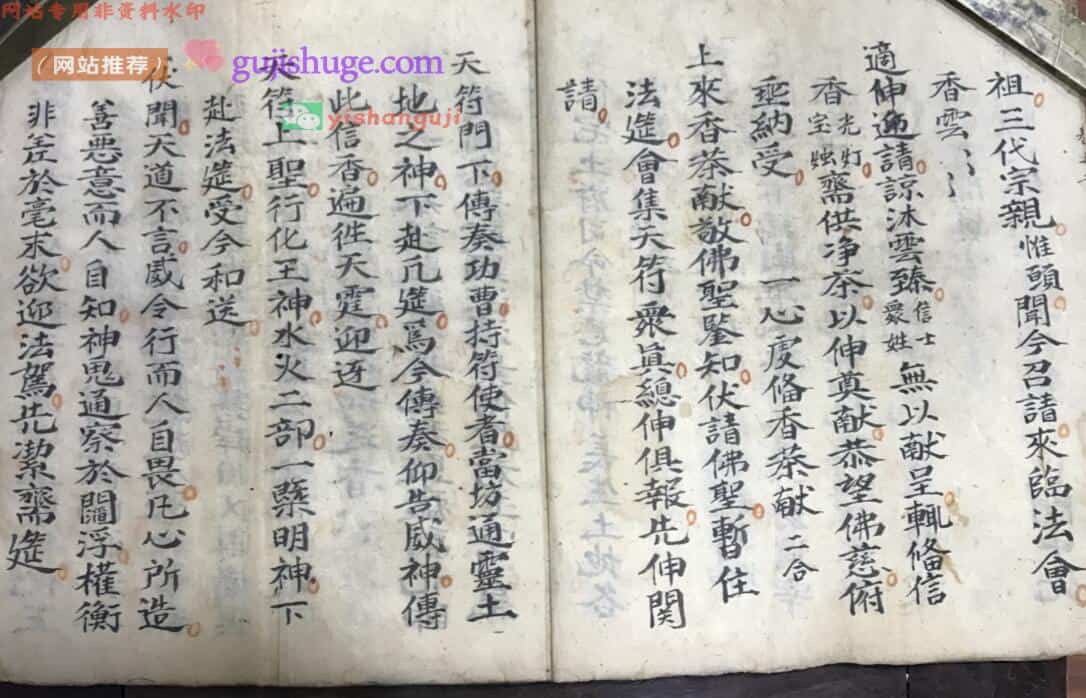 网站专用非资料水印
（网站推荐） gujishuge.com
yishanguji
祖三代宗親惟願聞今召請來臨法會
香雲〻〻
適伸迎請諒沐雲臻信士眾姓無以献呈輒俻信
香光灯宝烛齋供净茶以伸奠献恭望佛慈俯
垂納受 一心虔俻香茶献 二合
上來香茶献敬佛聖鑒知伏請佛聖暫住
法筵會集天符衆眞總伸俱報先伸関
請
天符門下傳奏功曹持符使者當坊通靈土
地之神下赴凢筵為今傳奏仰告威神傳
此信香遍徃天霆迎迓
天符上聖行化王神水火二部一槩明神下
赴法筵受今和送
伏聞天道不言威令行而人自畏凡心所造
善悪意而人自知神鬼通察於閻浮權衡
非差於毫末欲迎法駕先潔齋筵